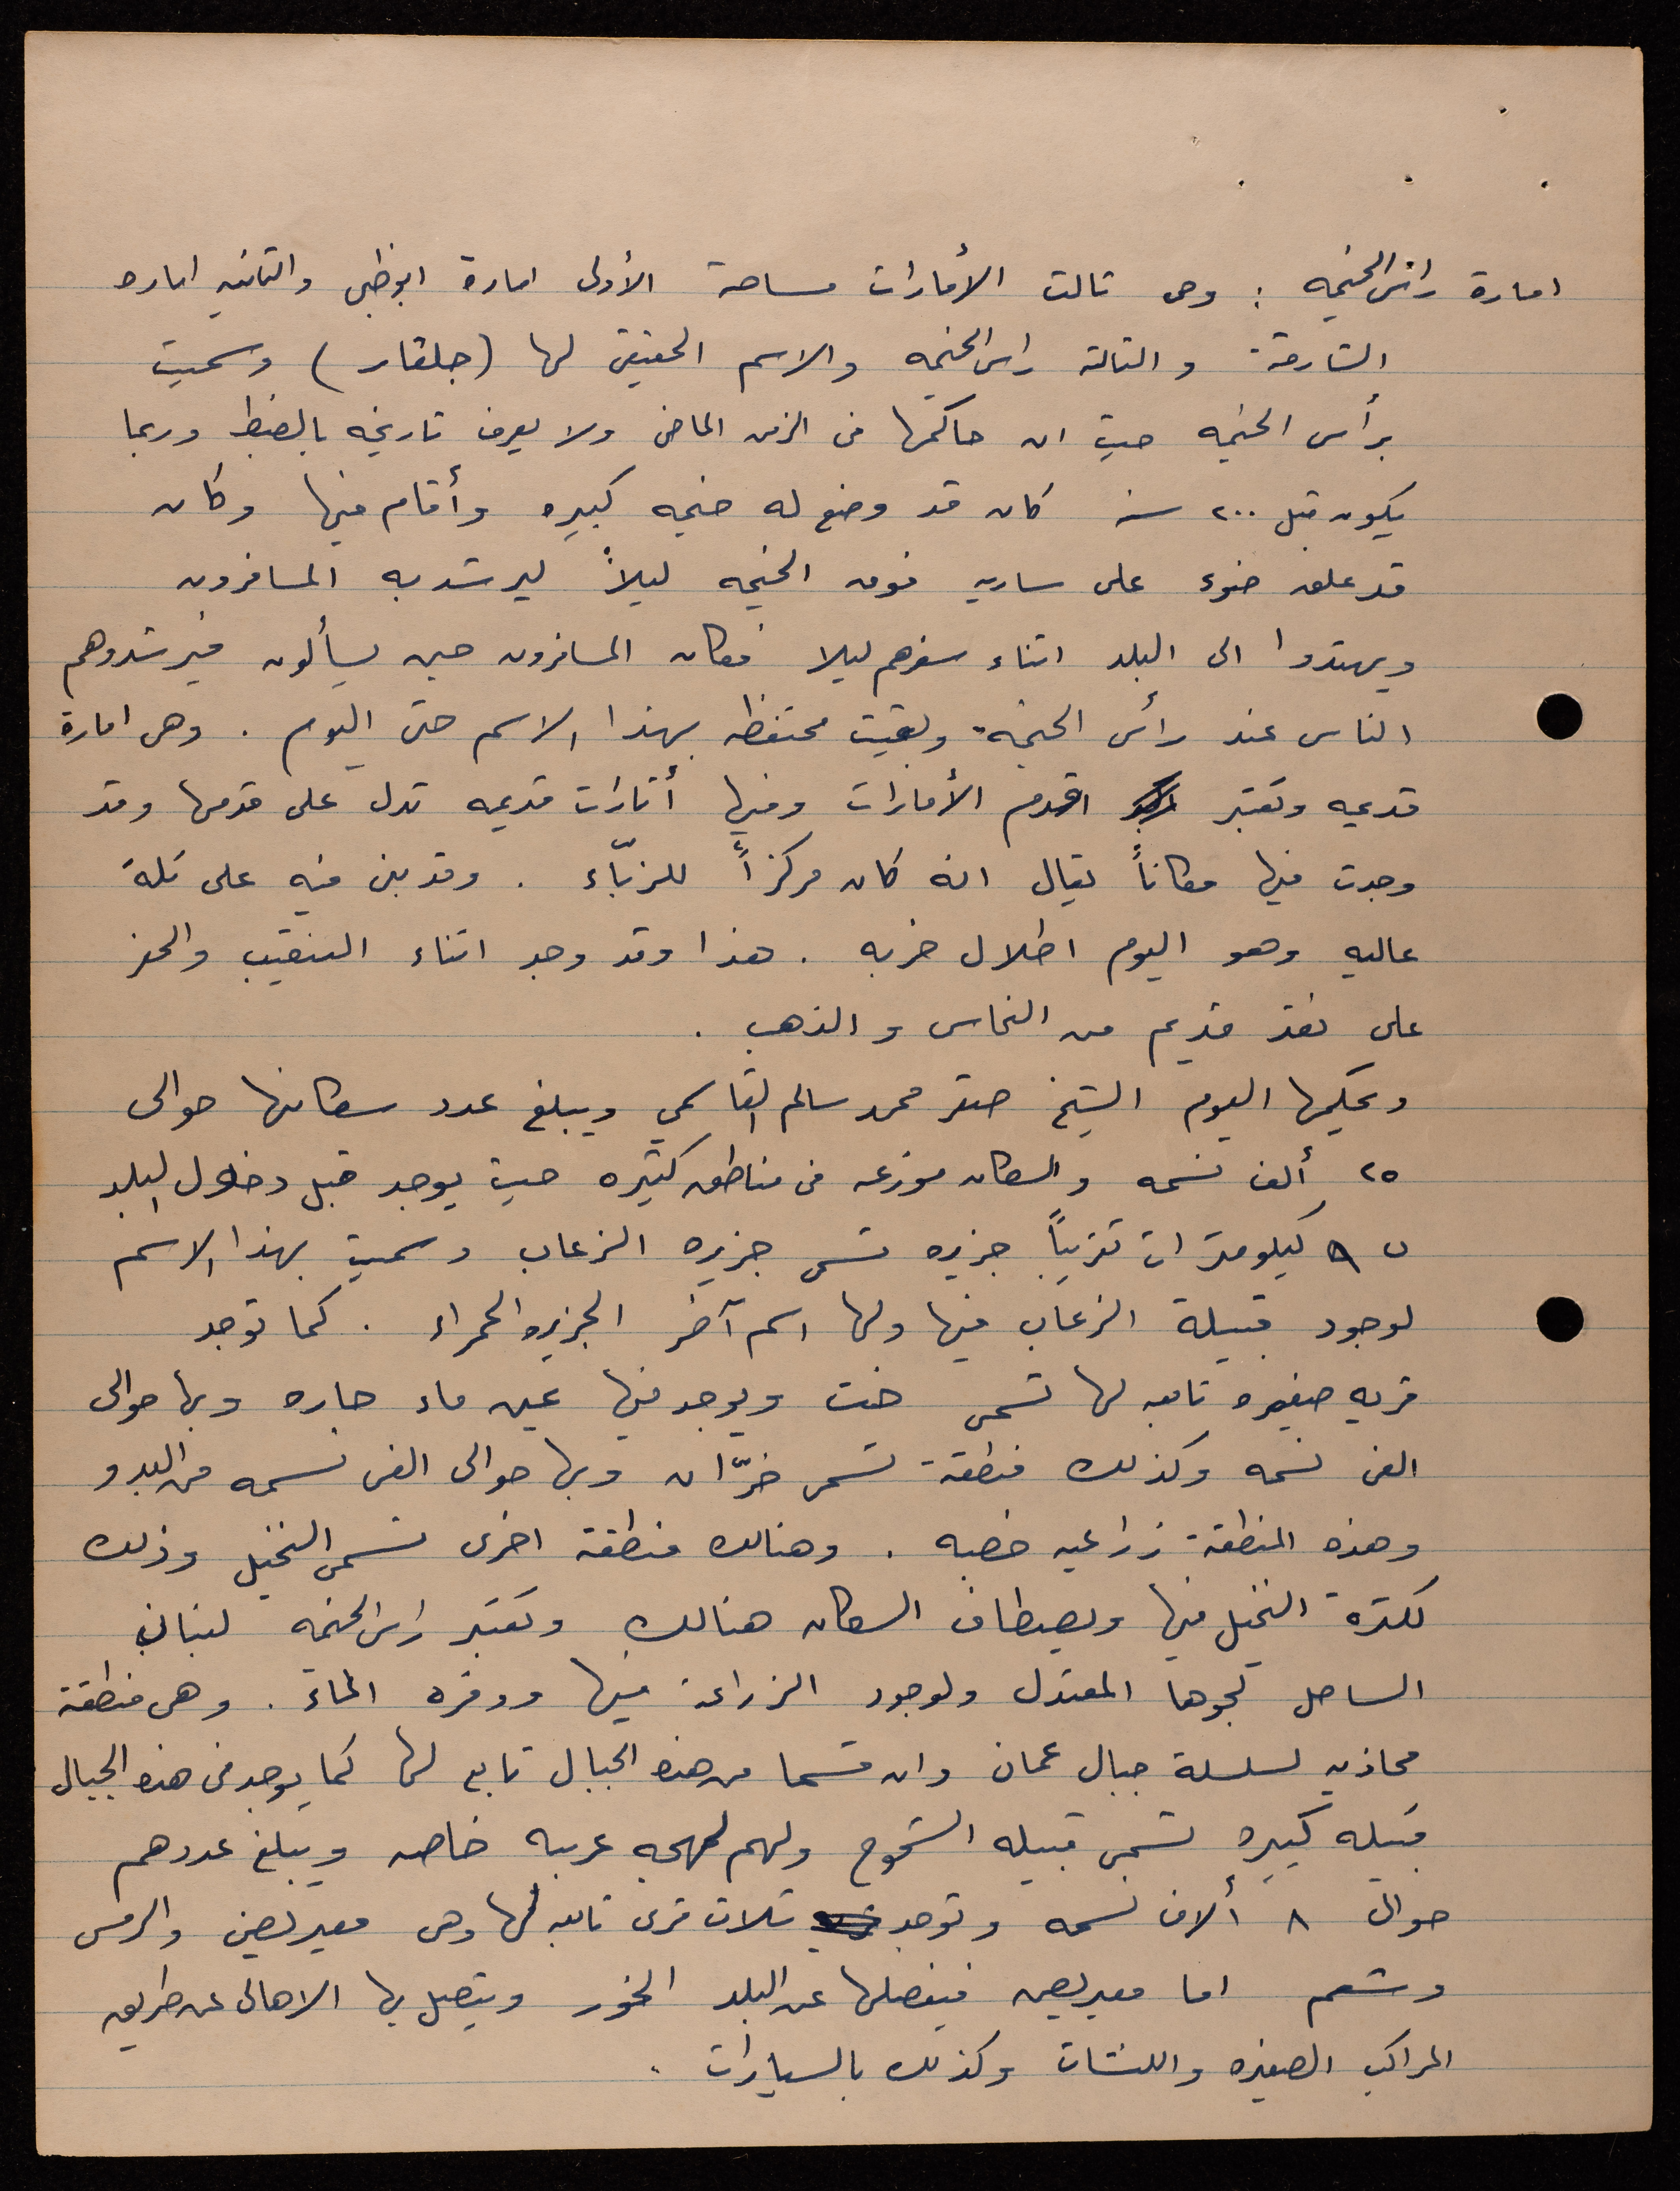 امارة راس الخيمه : وهى ثالث الأمارات مساحة الأولى امارة ابوظبي والثانيه اماره
الشارقة والثالثة راس الخيمه والاسم الحقيقى لها (جلفار) وسميت
برأس الخيمه حيث ان حاكمها فى الزمن الماضى ولا يعرف تاريخه بالضبط وربما
يكون قبل ٢٠٠ سنة كان قد وضع له خيمه كبيره وأقام فيها وكان
قد علق ضوء على ساريه فوق الخيمه ليلاً ليرشد به المسافرون
ويهتدوا الى البلد اثناء سفرهم ليلا فكان المسافرون حين يسألون فيرشدوهم
الناس عند رأس الخيمة وبقيت محتفظه بهذا الاسم حتى اليوم . وهى امارة
قديمه وتعتبر اقدم الأمارات وفيها أثارات قديمه تدل على قدمها وقد
وجدت فيها مكاناً يقال انه كان مركزاً للزبّاء . وقد بنى فيه على تلة
عاليه وهو اليوم اطلال خربه . هذا وقد وجد اثناء التنقيب والحفر
على نقد قديم من النحاس والذهب .
ويحكمها اليوم الشيخ صقر محمد سالم القاسمي ويبلغ عدد سكانها حوالى
٢٥ ألف نسمه والسكان موزعه فى مناطق كثيره حيث يوجد قبل دخول البلد
ب ٩ كيلومترات تقريباً جزيره تسمى جزيره الزعاب وسميت بهذا الاسم
لوجود قبيلة الزعاب فيها ولها اسم آخر الجزيره الحمراء . كما توجد
قريه صغيره تابعه لها تسمى خت ويوجد فيها عين ماء حاره وبها حوالى
الفى نسمه وكذلك منطقة تسمى خرّان وبها حوالى الفى نسمه من البدو
وهذه المنطقة زراعيه خصبه . وهنالك منطقة اخرى تسمى النخيل وذلك
لكثرة النخيل فيها ويصطاف السكان هنالك وتعتبر راس الخيمه لبنان
الساحل لجوها المعتدل ولوجود الزراعة فيها ووفره الماء . وهى منطقة
محاذيه لسلسلة جبال عمان وان قسما من هذه الجبال تابع لها كما يوجد فى هذه الجبال
قبيله كبيره تسمى قبيله الشحوح ولهم لهجه عربيه خاصه ويبلغ عددهم
حوالى ٨ ألاف نسمه وتوجد ثلاث قرى تابعه لها وهى معيريض والرمس
وشعم اما معيريض فيفصلها عن البلد الخور ويتصل بها الاهالى عن طريق
المراكب الصغيره واللنشات وكذلك بالسيارات .